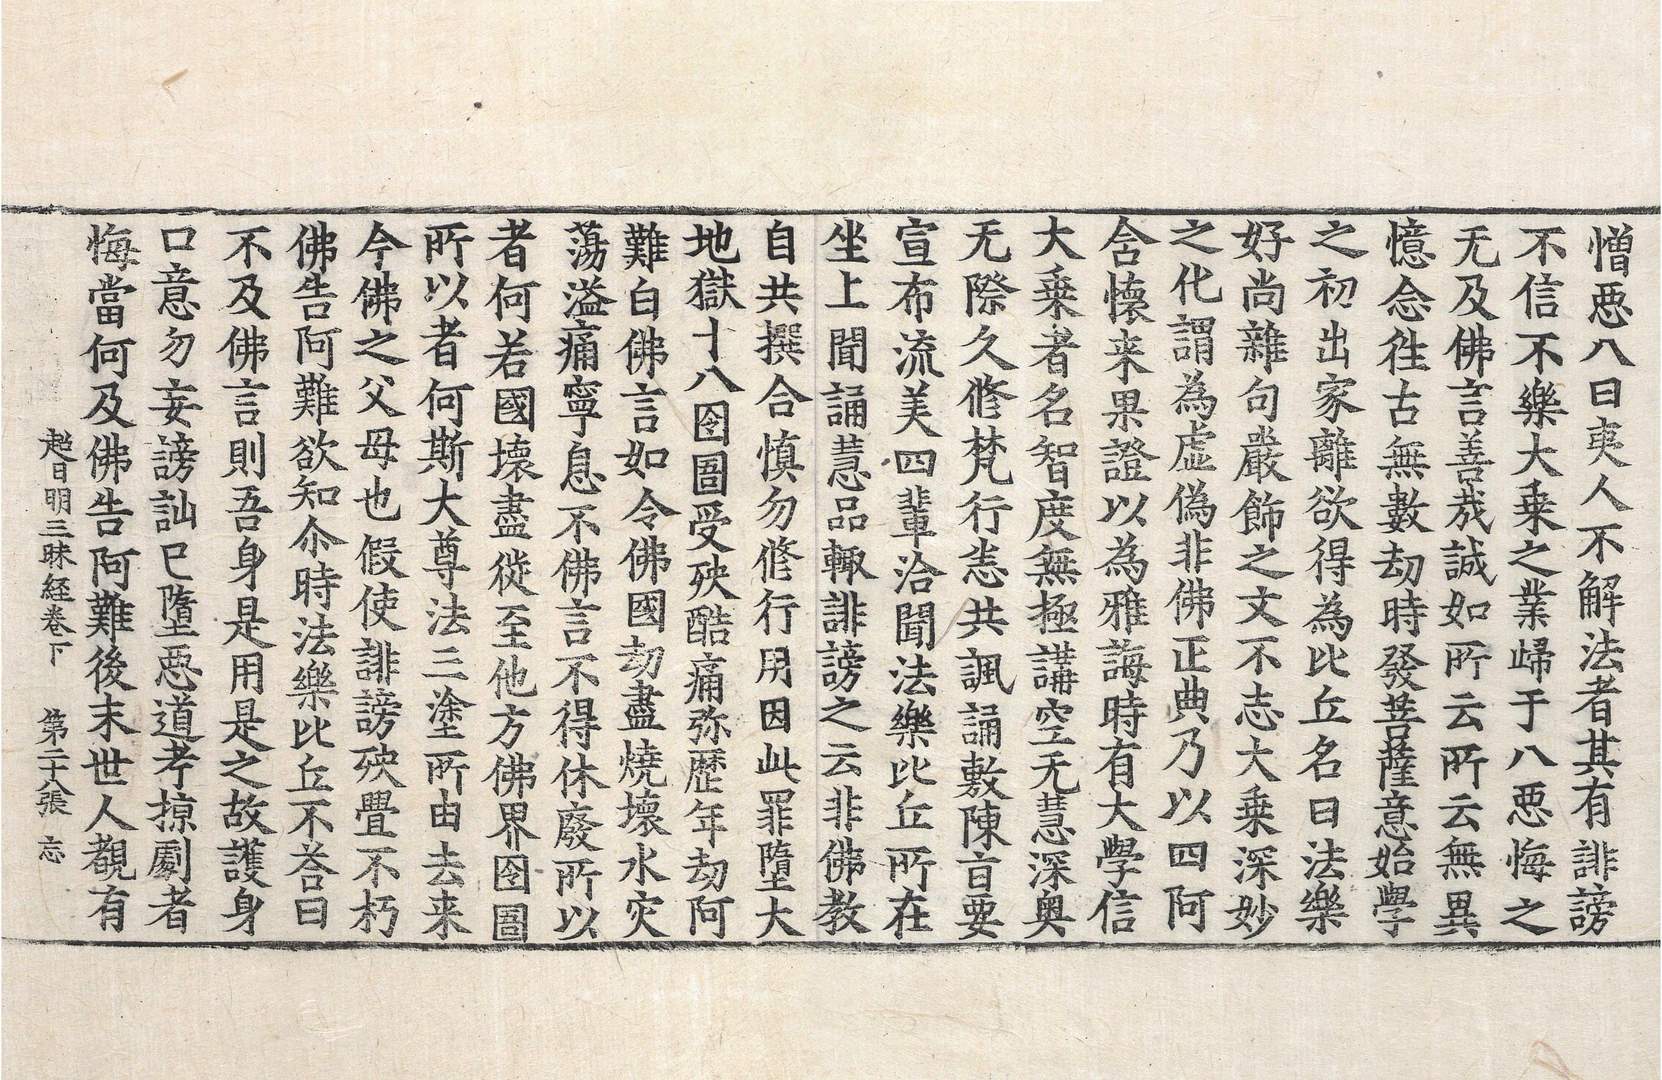 憎惡八曰夷人不解法者其有誹謗
不信不樂大乗之業歸于八惡悔之
无及佛言善㢤誠如所云所云無異
憶念徃古無數劫時發菩薩意始學
之初出家離欲得為比丘名曰法樂
好尚雜句嚴飾之文不志大乗深妙
之化謂為虛偽非佛正典乃以四阿
含懷来果證以為雅誨時有大學信
大乗者名智度無極講空无慧深奥
无際久修梵行恙共諷誦敷陳盲要
宣布流美四輩洽聞法樂比丘所在
坐上聞誦慧品輙誹謗之云非佛教
自共撰合慎勿修行用因此罪墮大
地獄十八囹圄受殃酷痛弥歷年劫阿
難白佛言如令佛國劫盡燒壞水灾
蕩溢痛寧息不佛言不得休廢所以
者何若國壞盡從至他方佛界囹圄
所以者何斯大尊法三塗所由去来
今佛之父母也假使誹謗殃疊不朽
佛告阿難欲知尒時法樂比丘不荅曰
不及佛言則吾身是用是之故護身
口意勿妄謗訕已墮惡道考掠劇者
悔當何及佛告阿難後末世人覩有
超日明三昧経卷下　第二十八張　忘